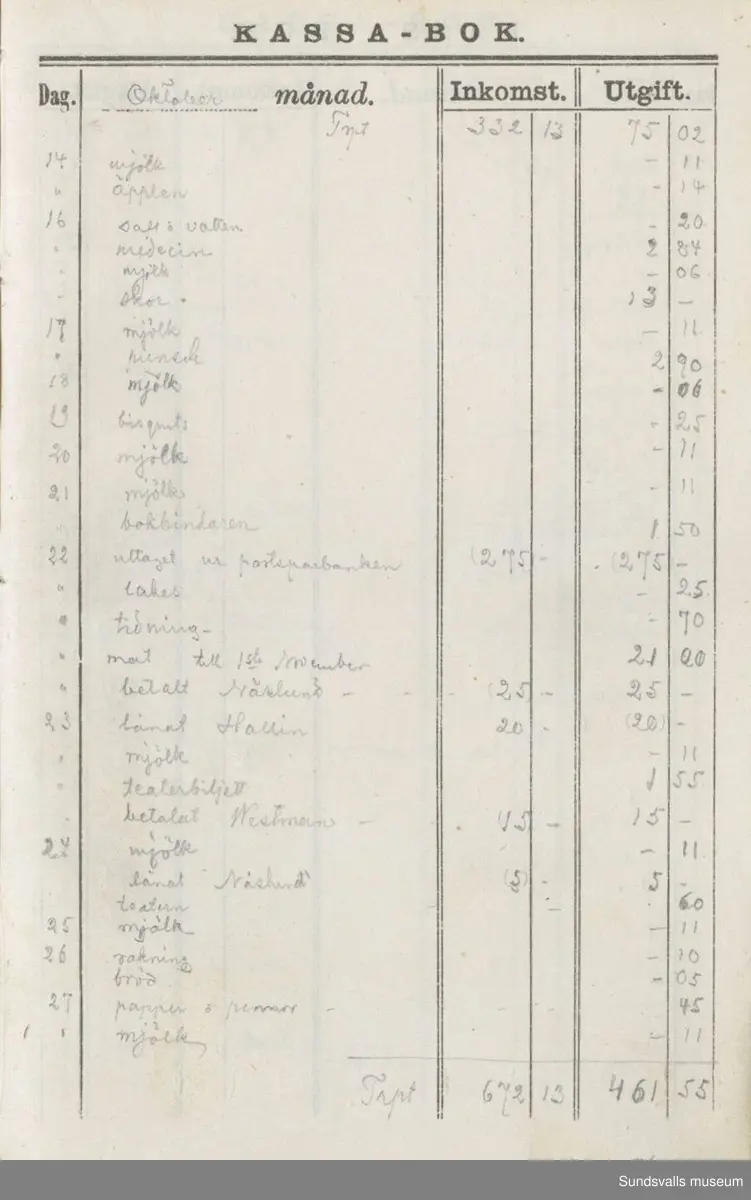 KASSA-BOK.
Dag. Oktober månad. Inkomst. Utgift.
Trpt 332 13 75 02
14 mjölk - 11
" äpplen - 14
16 saft o vatten - 20
" medecin 2 84
" mjölk - 06
" skor . 13 -
17 mjölk - 11
" 2 90
18 mjölk - 06
19 bisquits - 25
20 mjölk - 11
21 mjölk - 11
" bokbindaren 1 50
22 uttaget ur postsparbanken (275) - (275) -
" cakes - 25
" tidning - 70
" mat till 1ste November 21 00
" betalt Näslund - - (25) - 25 -
23 lånat Hallin 20 - (20) -
" mjölk - 11
" teaterbiljett 1 55
" betalat Westman - 15 - 15 -
24 mjölk - 11
lånat Näslund (5) - 5 -
teatern - - 60
25 mjölk - 11
26 rakning - 10
bröd - 05
27 papper o pennor - 45
" mjölk - 11
Trpt 672 13 461 55
Sundsvalls museum